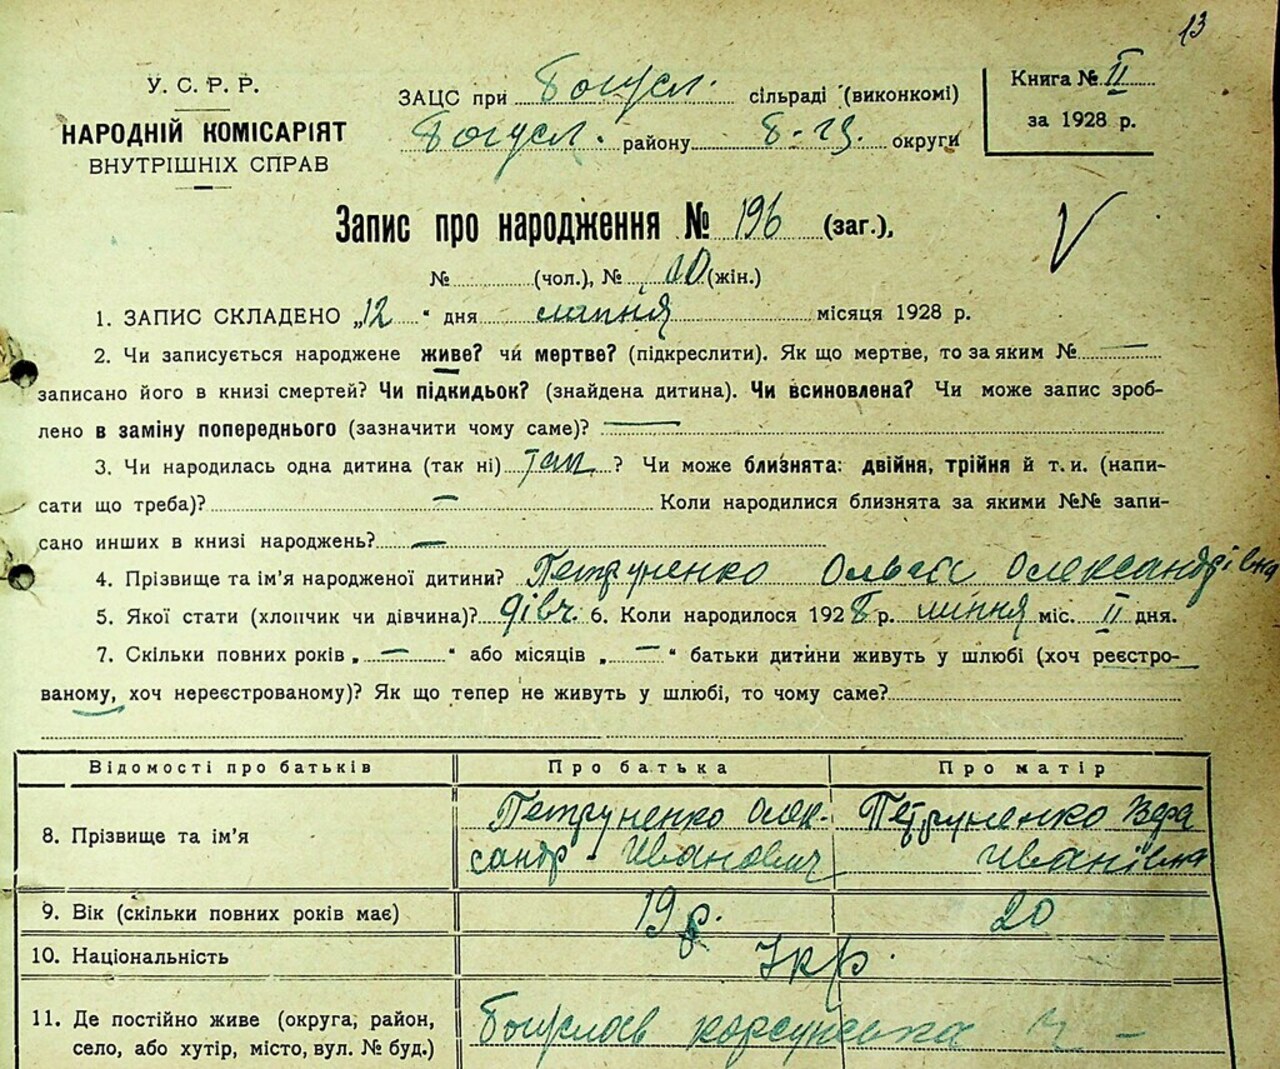 13
У. С. Р. Р.
НАРОДНІЙ КОМІСАРІЯТ
ВНУТРІШНІХ СПРАВ
ЗАЦС при Богусл. сільраді (виконкомі)
Богусл. району Б-Ц. округи
Книга № II
за 1928 р.
Запис про народження № 196 (заг.),
№ (чол.), № (жін.)
1. ЗАПИС СКЛАДЕНО „12" дня липня місяця 1928 р.
2. Чи записується народжене живе? чи мертве? (підкреслити). Як що мертве, то за яким № —
записано його в книзі смертей? Чи підкидьок? (знайдена дитина). Чи всиновлена? Чи може запис зроб-
лено в заміну попереднього (зазначити чому саме)? —
3. Чи народилась одна дитина (так ні) так ? Чи може близнята: двійня, трійня й т. и. (напи-
сати що треба)? — Коли народилися близнята за якими №№ запи-
сано инших в книзі народжень? —
4. Прізвище та ім'я народженої дитини? Петруненко Ольга Олександрівна
5. Якої стати (хлопчик чи дівчина)? дівч. 6. Коли народилося 1928 р. липня міс. II дня.
7. Скільки повних років „ — " або місяців „ — " батьки дитини живуть у шлюбі (хоч реєстро-
ваному, хоч нереєстрованому)? Як що тепер не живуть у шлюбі, то чому саме?
Відомості про батьків Про батька Про матір
8. Прізвище та ім'я Петруненко Олек- Петруненко Вера
сандр Иванович Иванівна
9. Вік (скільки повних років має) 19 р. 20
10. Національність Укр.
11. Де постійно живе (округа, район, Богуслав корсунська
село, або хутір, місто, вул. № буд.)